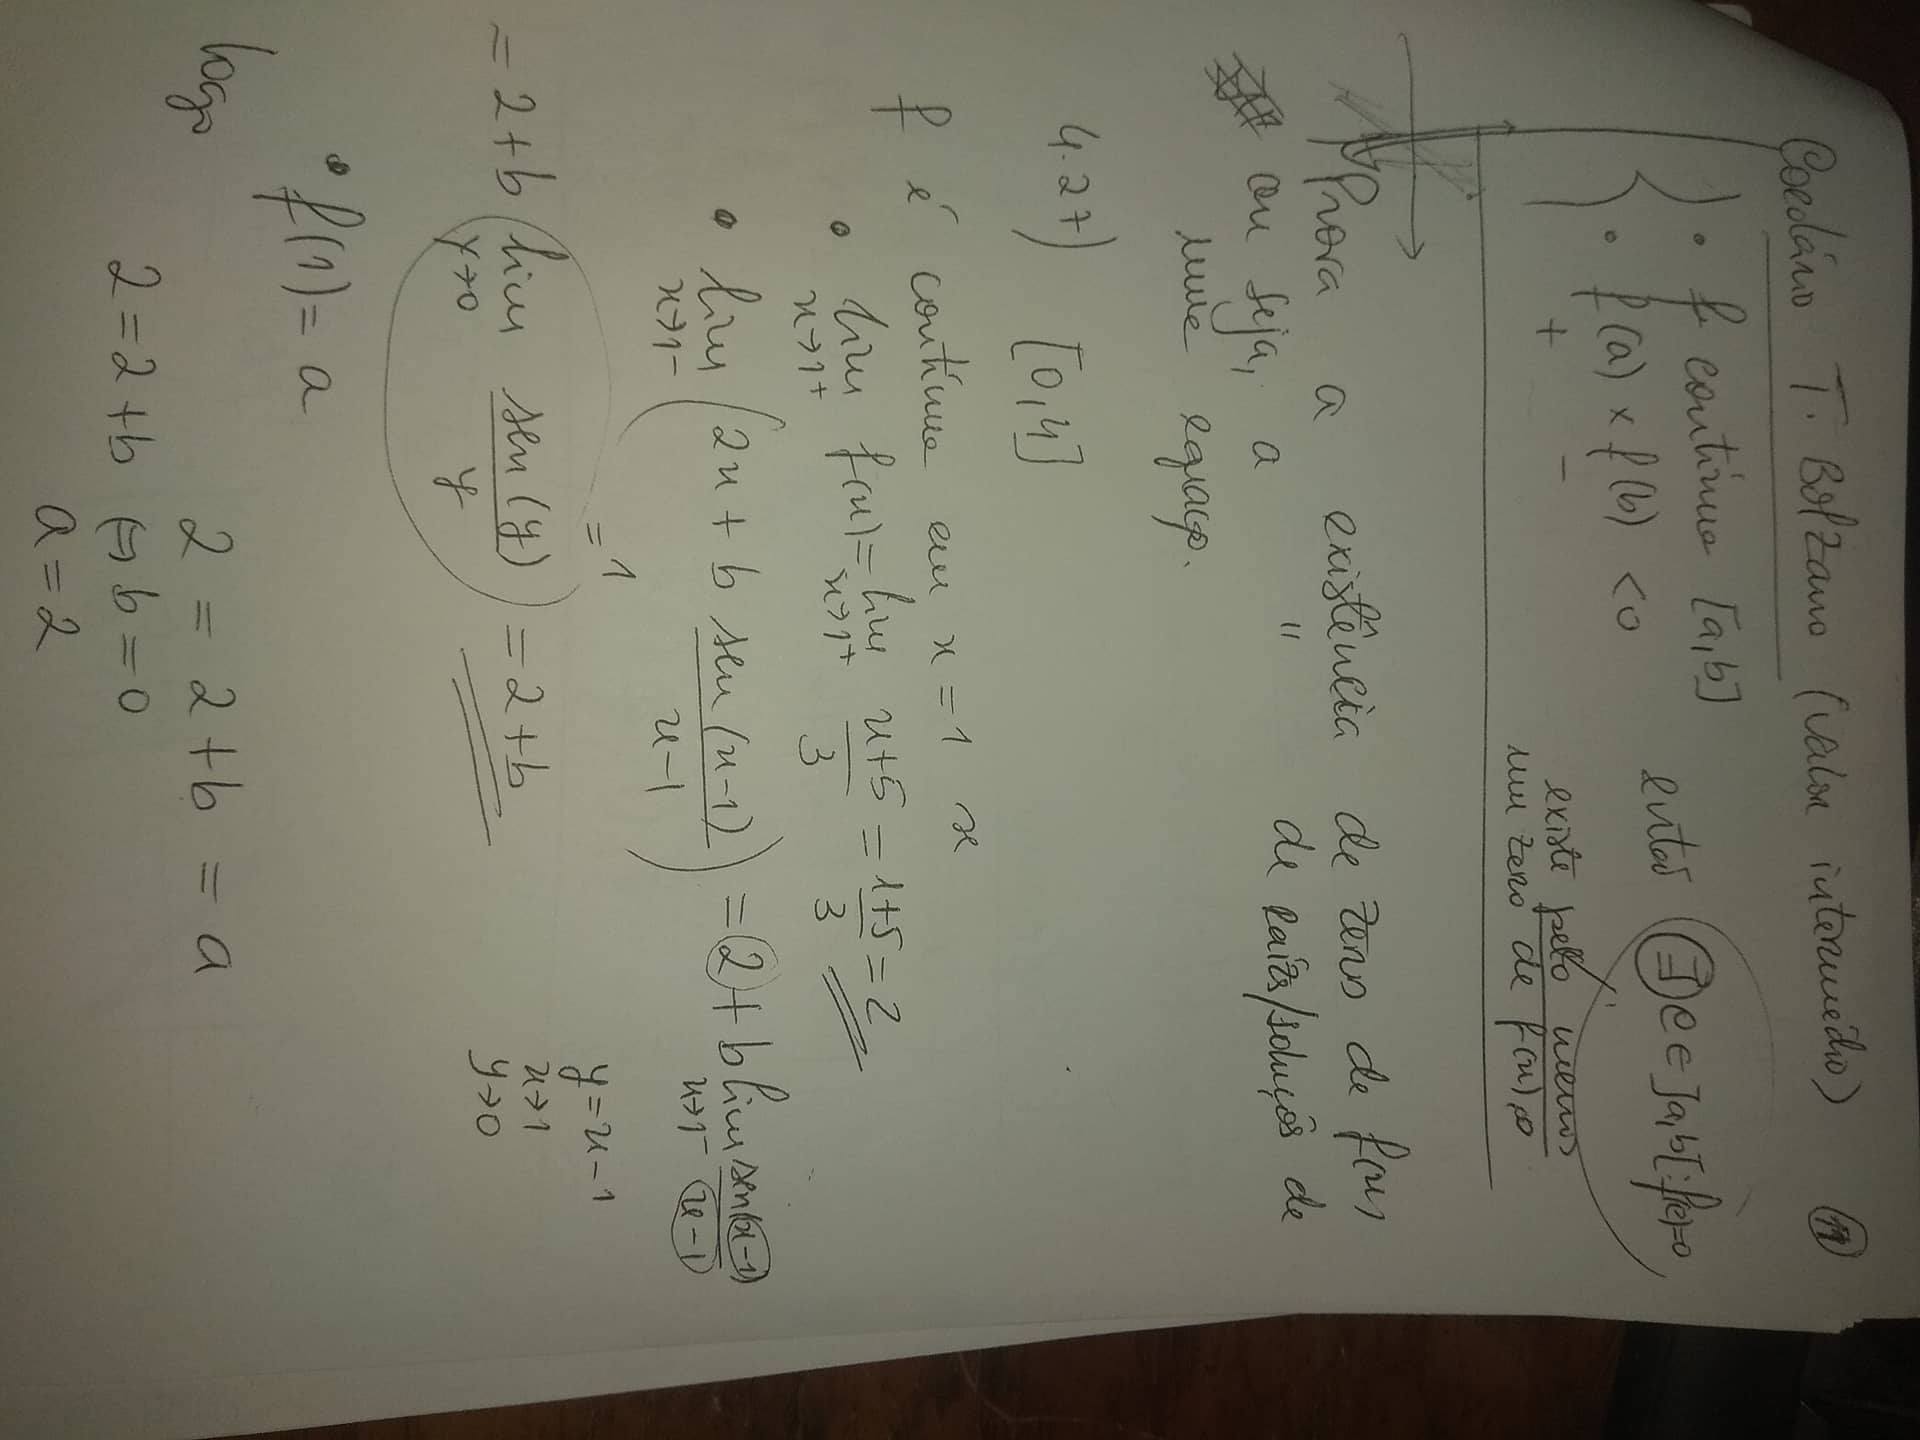 Corolário T. Bolzano (valor intermédio) 11
• f contínua [a,b]
• f(a) × f(b) < 0
+ −
então ∃ c ∈ ]a,b[ : f(c)=0
existe pelo menos
um zero de f(x)
Prova a existência de zeros de f(x)
ou seja, a " de raízes/soluções de
uma equação.
4.27) [0,4]
f é contínua em x = 1 x
• lim x→1+ f(x) = lim x→1+ (x+5)/3 = (1+5)/3 = 2
• lim x→1− (2x + b sen(x−1)/(x−1)) = 2 + b lim x→1− sen(x−1)/(x−1)
= 1
y = x−1
x→1
y→0
= 2+b lim y→0 sen(y)/y = 2+b
• f(1) = a
logo
2 = 2+b = a
2 = 2+b ⇔ b = 0
a = 2